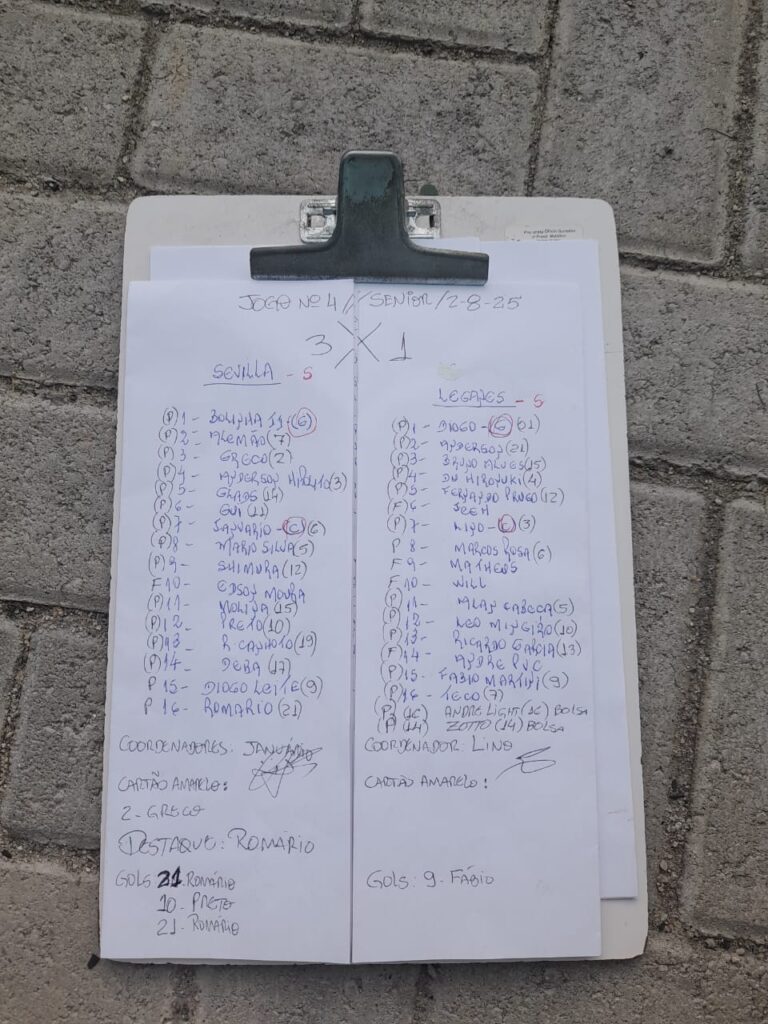 JOGO Nº 4 // SENIOR / 2-8-25
3 X 1
SEVILLA - 5
(P) 1 - BOLINHA 71 - (G)
(P) 2 - ALEMÃO (7)
(P) 3 - GRECO (2)
(P) 4 - ANDERSON (3)
(P) 5 - (14)
(P) 6 - GUI (11)
(P) 7 - JANUARIO - (C) (6)
(P) 8 - MARIO SILVA (5)
(P) 9 - SHIMURA (12)
F 10 - EDSON MOURA
(P) 11 - MOLINA (15)
(P) 12 - PRETO (10)
(P) 13 - R. CANHOTO (19)
(P) 14 - DEBA (17)
P 15 - DIOGO LEITE (9)
P 16 - ROMARIO (21)
COORDENADORES: JANUÁRIO
CARTÃO AMARELO:
2 - GRECO
DESTAQUE: ROMÁRIO
GOLS 21 - ROMÁRIO
10 - PRETO
21 - ROMÁRIO
LEGANES - 5
(P) 1 - DIOGO - (G) (31)
(P) 2 - ANDERSON (21)
(P) 3 - BRUNO ALVES (15)
(P) 4 - DU HIROYUKI (4)
(P) 5 - FERNANDO (12)
F 6 -
(P) 7 - LINO - (C) (3)
P 8 - MARCOS ROSA (6)
F 9 - MATHEUS
F 10 - WILL
(P) 11 - ALAN CABECA (5)
(P) 12 - LEO MINEIRO (10)
(P) 13 - RICARDO GARCIA (13)
(F) 14 - ANDRE PVC
(P) 15 - FABIO MARTINI (9)
(P) 16 - TECO (7)
(P) (16) ANDRE LIGHT (16) BOLSA
(P) (14) ZOTTO (14) BOLSA
COORDENADOR: LINO
CARTÃO AMARELO:
GOLS: 9 - FÁBIO